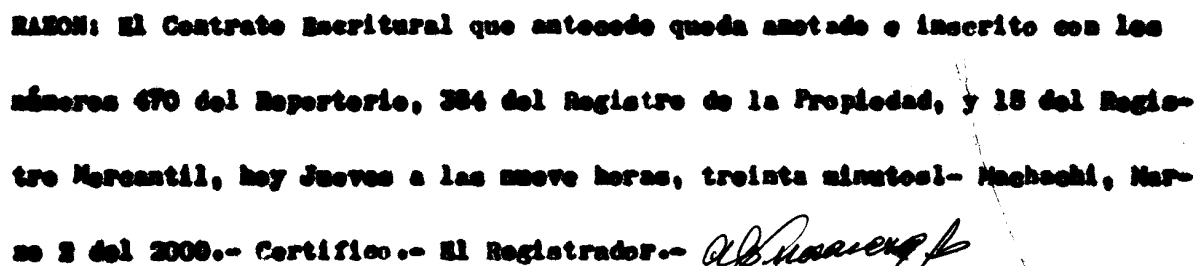 RAZON: El Contrato Escritural que antecede queda anotado e inscrito con los
números 470 del Repertorio, 384 del Registro de la Propiedad, y 15 del Regis-
tro Mercantil, hoy Jueves a las nueve horas, treinta minutosl- Machachi, Mar-
zo 2 del 2000.- Certifico.- El Registrador.-